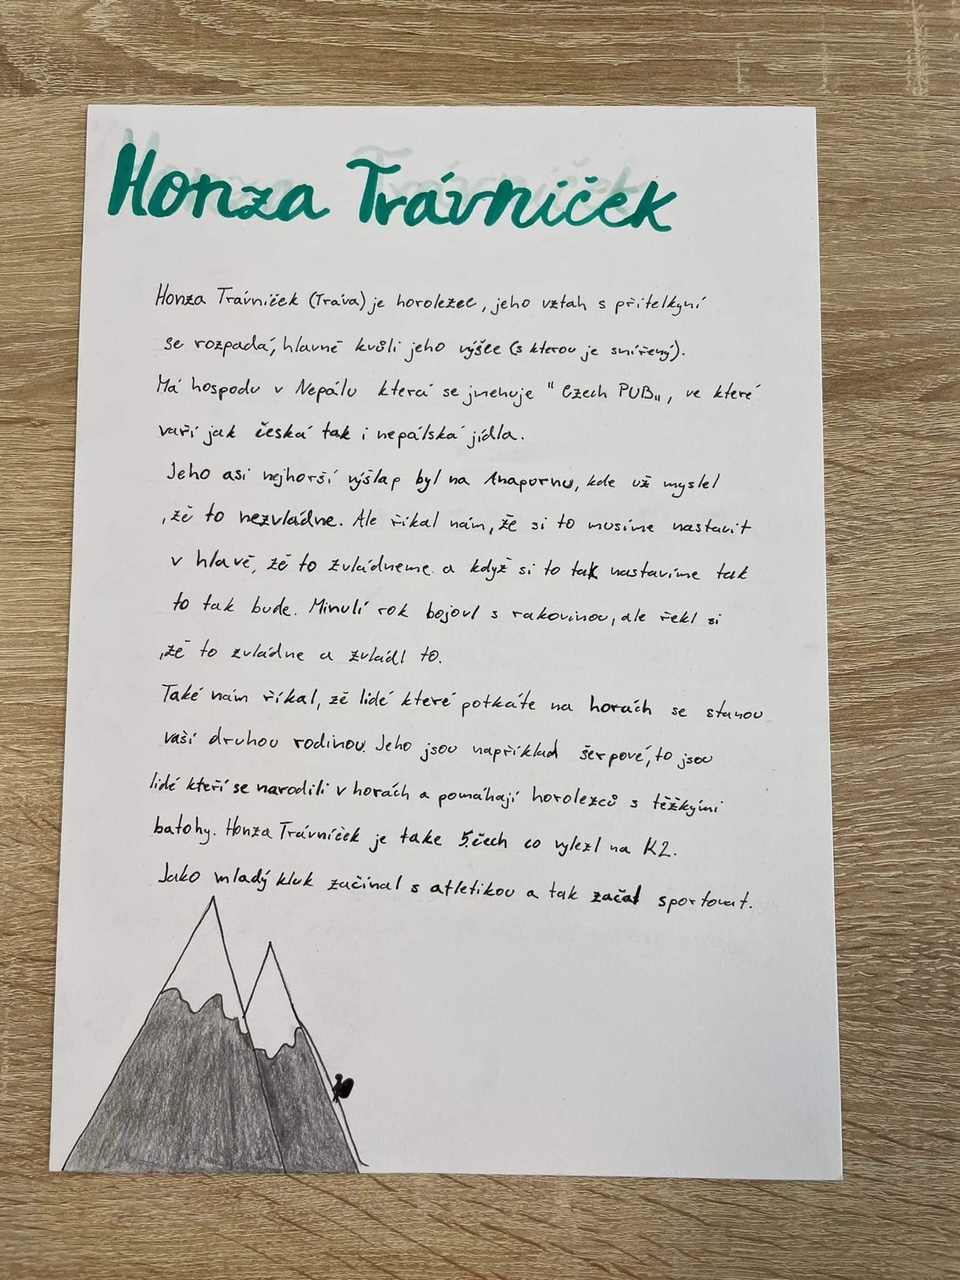 Honza Trávníček
Honza Trávníček (Tráva) je horolezec, jeho vztah s přítelkyní
se rozpadá, hlavně kvůli jeho výšce (s kterou je smířený).
Má hospodu v Nepálu která se jmenuje "Czech PUB„, ve které
vaří jak česká tak i nepálská jídla.
Jeho asi nejhorší výšlap byl na Anapornu, kde už myslel
,že to nezvládne. Ale říkal nám, že si to musíme nastavit
v hlavě, že to zvládneme a když si to tak nastavíme tak
to tak bude. Minulí rok bojovl s rakovinou, ale řekl si
,že to zvládne a zvládl to.
Také nám říkal, zě lidé které potkáte na horách se stanou
vaší druhou rodinou. Jeho jsou například šerpové, to jsou
lidé kteří se narodili v horách a pomáhají horolezců s těžkými
batohy. Honza Trávníček je take 5.čech co vylezl na K2.
Jako mladý kluk začínal s atletikou a tak začal sportovat.